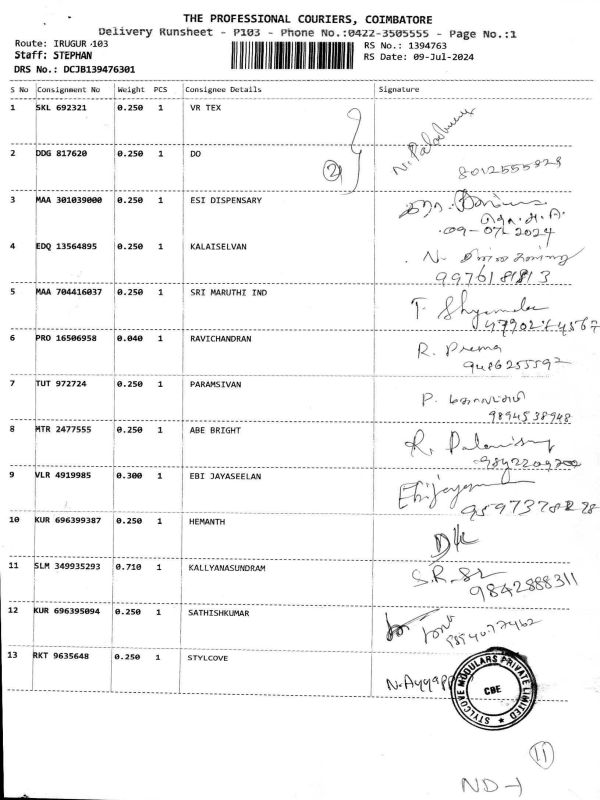 THE PROFESSIONAL COURIERS, COIMBATORE
Delivery Runsheet - P103 - Phone No.:0422-3505555 - Page No.:1
Route: IRUGUR 103 RS No.: 1394763
Staff: STEPHAN RS Date: 09-Jul-2024
DRS No.: DCJB139476301
S No Consignment No Weight PCS Consignee Details Signature
1 SKL 692321 0.250 1 VR TEX
2 DDG 817620 0.250 1 DO
2
8012555828
3 MAA 301039000 0.250 1 ESI DISPENSARY
09-07-2024
4 EDQ 13564895 0.250 1 KALAISELVAN N.
9976181813
5 MAA 704416037 0.250 1 SRI MARUTHI IND T. Shyamala
6 PRO 16506958 0.040 1 RAVICHANDRAN R. Prema
9486255592
7 TUT 972724 0.250 1 PARAMSIVAN P.
9894538948
8 MTR 2477555 0.250 1 ABE BRIGHT
9 VLR 4919985 0.300 1 EBI JAYASEELAN
10 KUR 696399387 0.250 1 HEMANTH
11 SLM 349935293 0.710 1 KALLYANASUNDRAM
9842888311
12 KUR 696395094 0.250 1 SATHISHKUMAR
13 RKT 9635648 0.250 1 STYLCOVE N. Ayyapp
STYLCOVE MODULARS PRIVATE LIMITED
CBE
11
ND-1